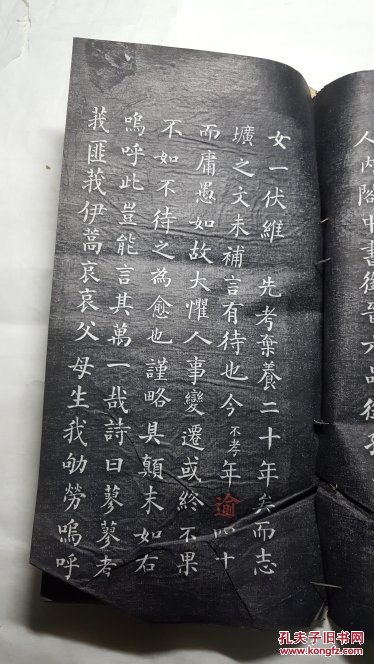 人内閣中書銜晉六品
女一伏維 先考棄養二十年矣而志
壙之文未補言有待也今不孝年逾四十
而庸愚如故大懼人事變遷或終不果
不如不待之為愈也謹略具顛末如右
嗚呼此豈能言其萬一哉詩曰蓼蓼者
莪匪莪伊蒿哀哀父母生我劬勞嗚呼
孔夫子旧书网
kongfz.com